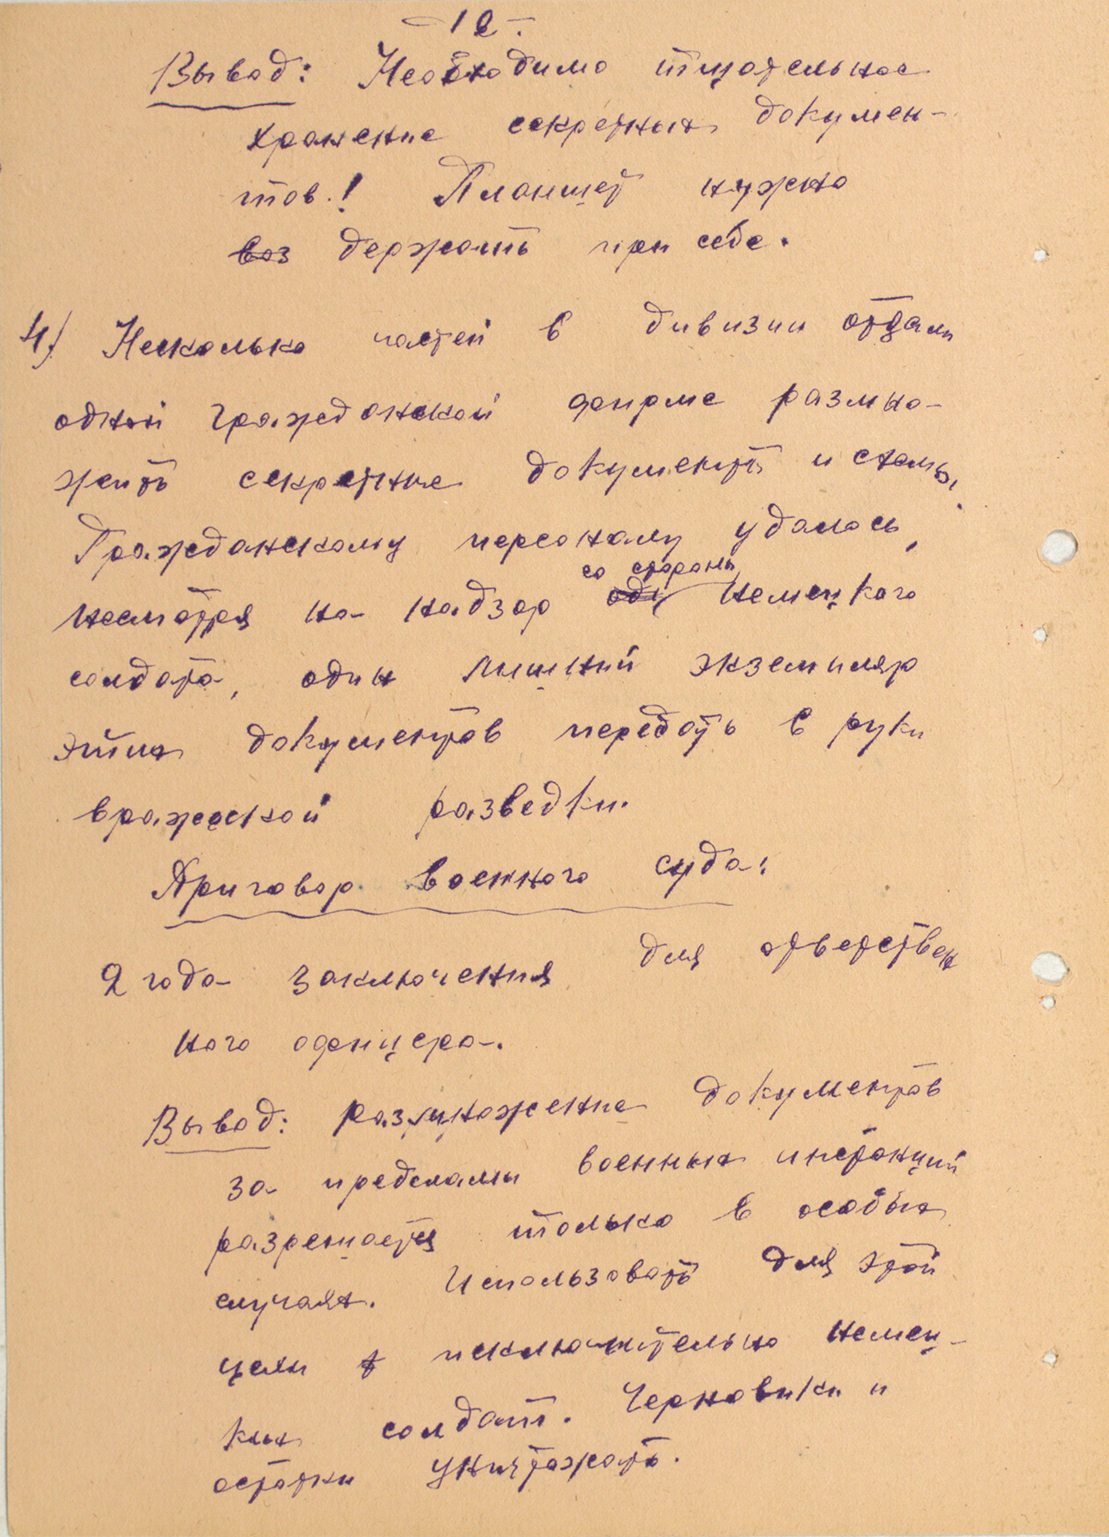 -12-
Вывод: Необходимо тщательное
хранение секретных докумен-
тов.! Планшет нужно
воз держать при себе.
4.) Несколько частей в дивизии отдали
одной гражданской фирме размно-
жить секретные документы и схемы.
Гражданскому персоналу удалось,
со стороны
несмотря на надзор одн немецкого
солдата, один лишний экземпляр
этих документов передать в руки
вражеской разведки.
Приговор военного суда:
2 года заключения для ответствен
ного офицера.
Вывод: Размножение документов
за пределами военных инстанций
разрешается только в особых
случаях. Использовать для этой
цели исключительно немец-
ких солдат. Черновики и
остатки уничтожать.